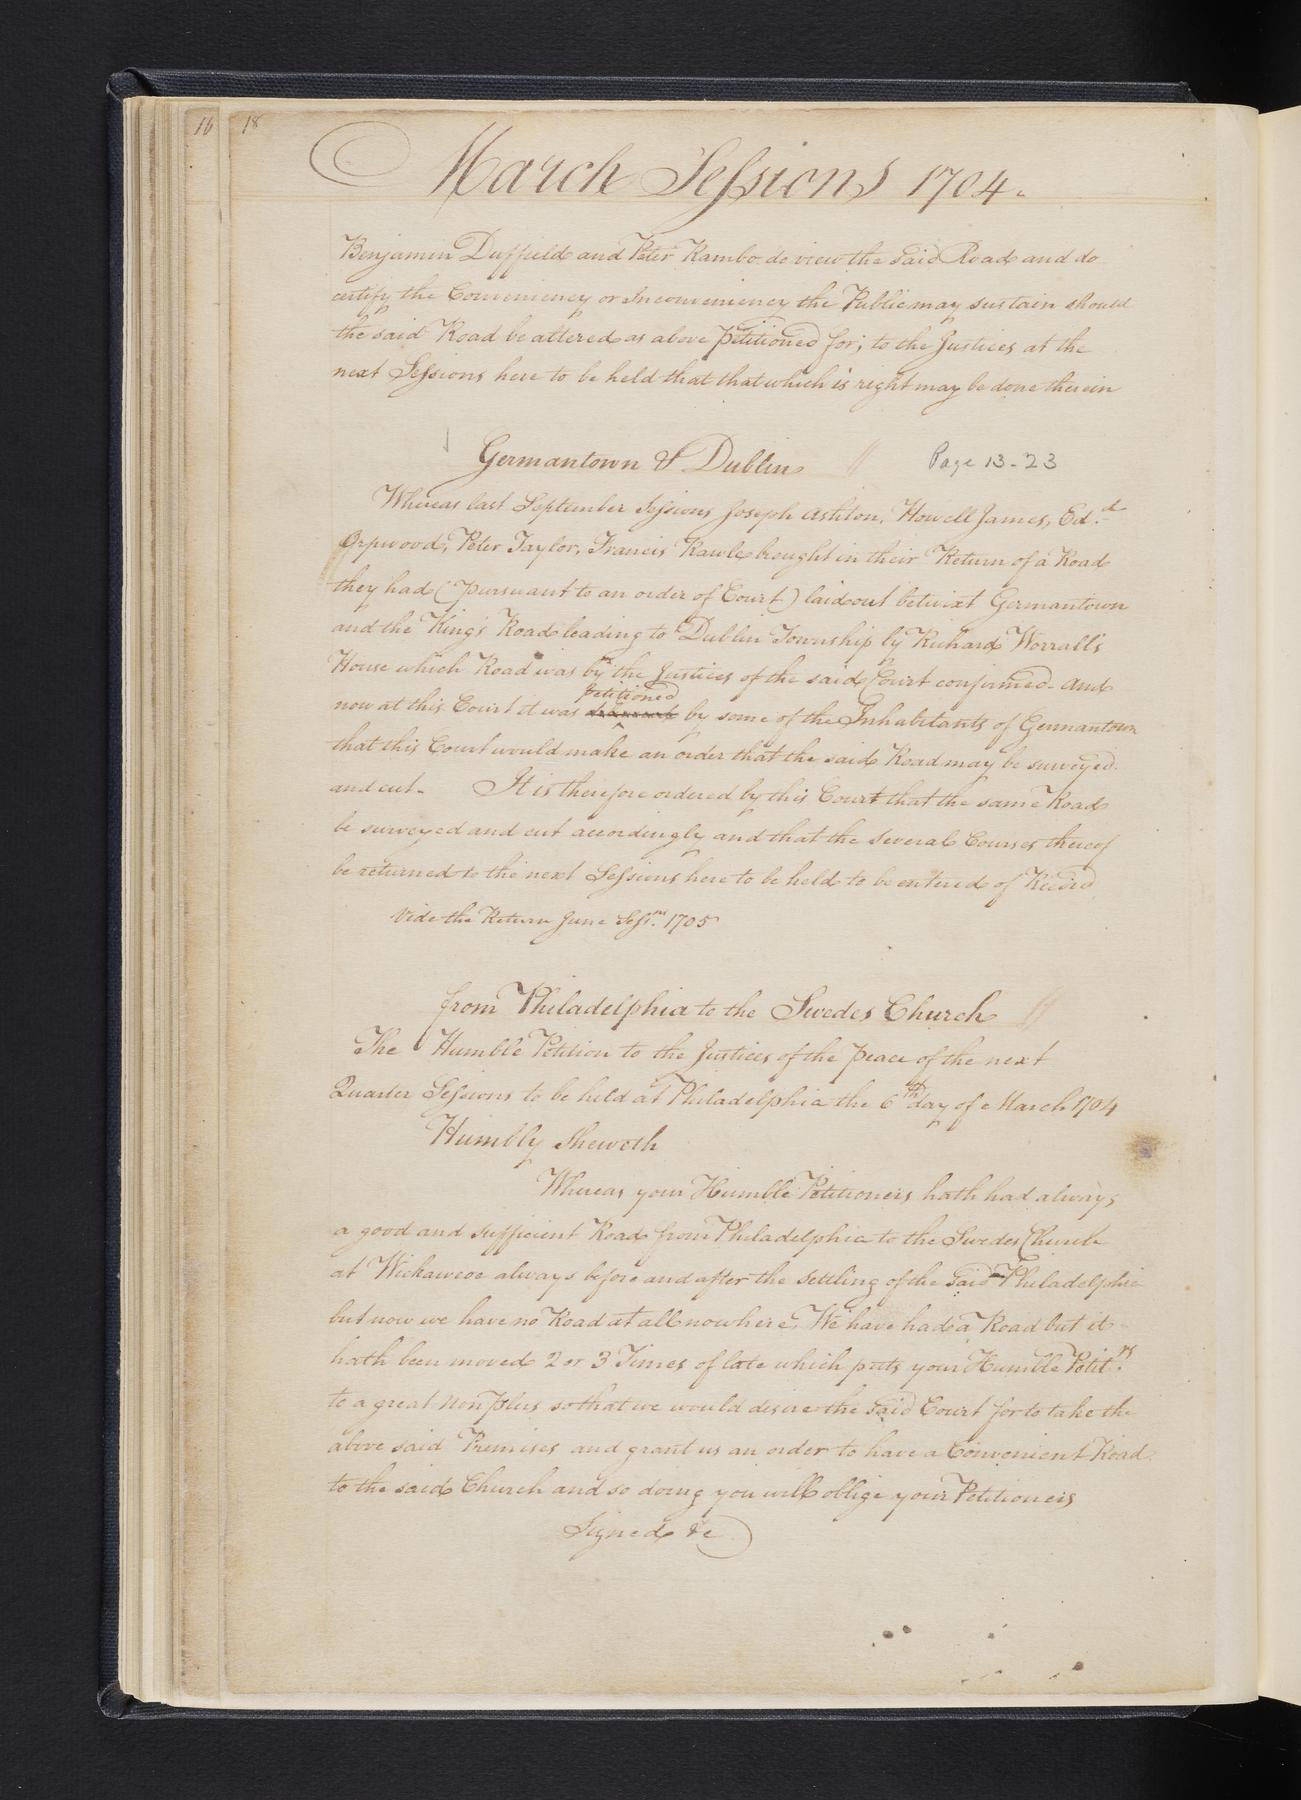 16 18
March Sessions 1704.
Benjamin Duffield and Peter Rambo do view the said Road and do
certify the Conveniency or Inconveniency the Public may sustain should
the said Road be altered as above petitioned for; to the Justices at the
next Sessions here to be held that that which is right may be done therein
Germantown & Dublin // Page 13-23
Whereas last September Sessions Joseph Ashton, Howell James, Ed.d
Orpwood, Peter Taylor, Francis Rawle brought in their Return of a Road
they had (pursuant to an order of Court) laid out betwixt Germantown
and the King's Road leading to Dublin Township by Richard Worrall's
House which Road was by the Justices of the said Court confirmed. And
petitioned
now at this Court it was by some of the Inhabitants of Germantown
that this Court would make an order that the said Road may be surveyed
and cut. It is therefore ordered by this Court that the same Road
be surveyed and cut accordingly and that the several Courses thereof
be returned to the next Sessions here to be held to be entered of Record
Vide the Return June Sess.ns 1705
from Philadelphia to the Swedes Church //
The Humble Petition to the Justices of the peace of the next
Quarter Sessions to be held at Philadelphia the 6th day of March 1704
Humbly Sheweth
Whereas your Humble Petitioners hath had always
a good and sufficient Road from Philadelphia to the Swedes Church
at Wickawcoe always before and after the settling of the said Philadelphia
but now we have no Road at all nowhere. We have had a Road but it
hath been moved 2 or 3 Times of late which puts your Humble Petit.rs
to a great non plus so that we would desire the said Court for to take the
above said Premises and grant us an order to have a Convenient Road
to the said Church and so doing you will oblige your Petitioners
Signed &c